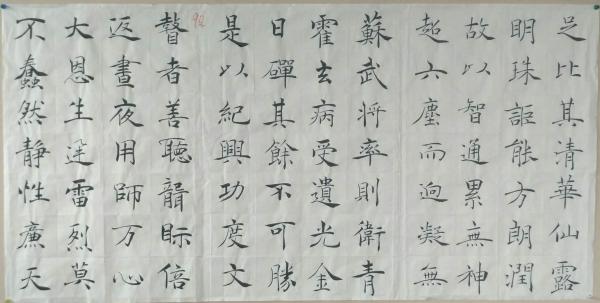 足比其清華仙露
明珠詎能方朗潤
故以智通累無神
超六塵而迥凝無
蘇武將率則衛青
霍去病受遺光金
日磾其餘不可勝
是以紀興功度文
92
瞽者善聽聾眎倍
返晝夜用師万心
大恩生迅雷烈莫
不蠢然靜性廉天